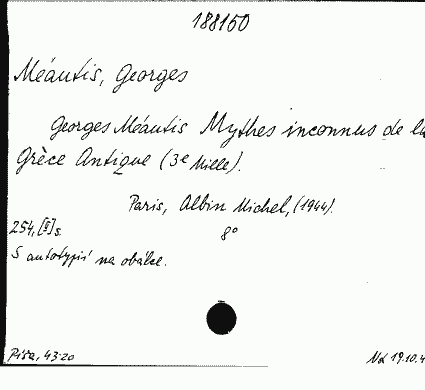 188150
Méautis, Georges
Georges Méautis Mythes inconnus de la
Grèce Antique (3e Mille).
Paris, Albin Michel, (1944).
254, [II] s. 8°
S autotypií na obálce.
Píša, 43.20 19.10.4